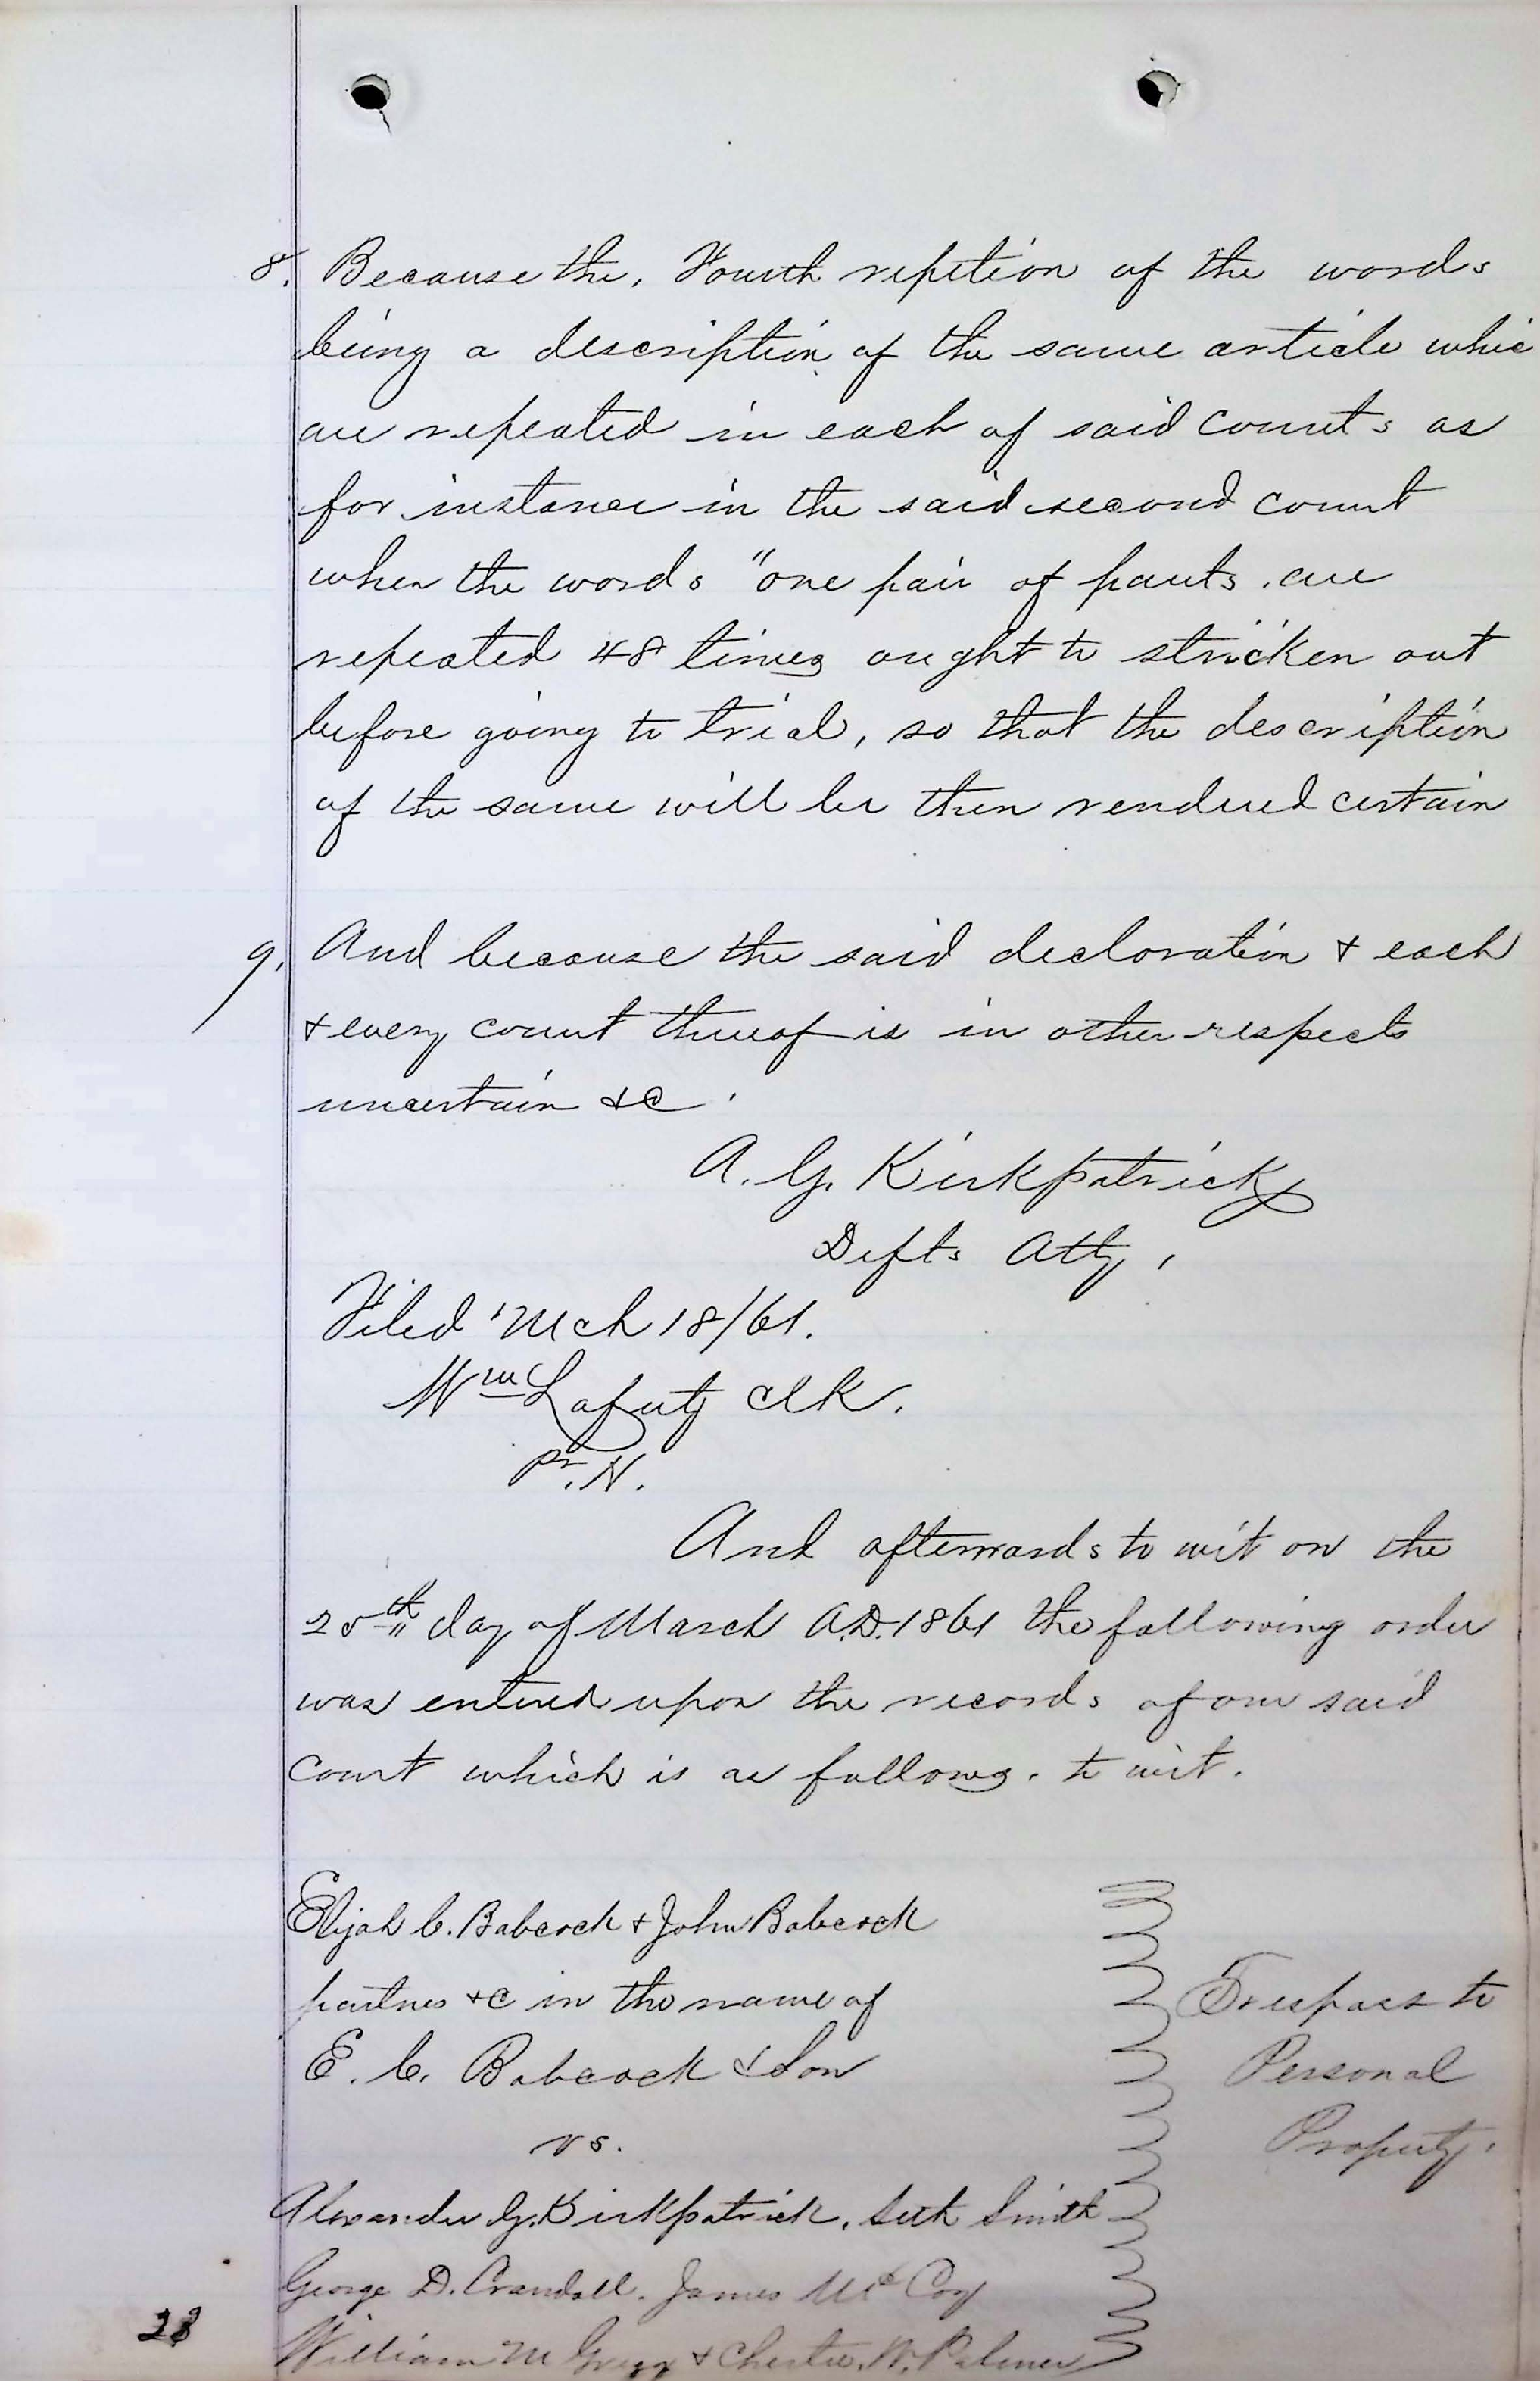 8. Because the, Fourth repition of the words
being a description of the same article whic
are repeated in each of said Counts as
for instance in the said second Count
when the words "one pair of pants. are
repeated 48 times ought to stricken out
before going to trial, so that the description
of the same will be then rendered certain
9. And because the said declaration & each
& every count thereof is in other respects
uncertain &c.
A. G. Kirkpatrick
Defts Atty,
Filed Mch 18/61.
Wm Lafuty Clk.
Pr. N.
And afterwards to wit on the
25th day of March A.D. 1861 the following order
was entered upon the records of our said
Court which is as follows. to wit.
Elijah C. Babcock & John Babcock
partners &c in the name of
E. C. Babcock & Son
vs.
Trespass to
Personal
Property.
Alexander G. Kirkpatrick, Seth Smith
George D. Crandall. James McCoy
William M Gregg & Chester W. Palmer